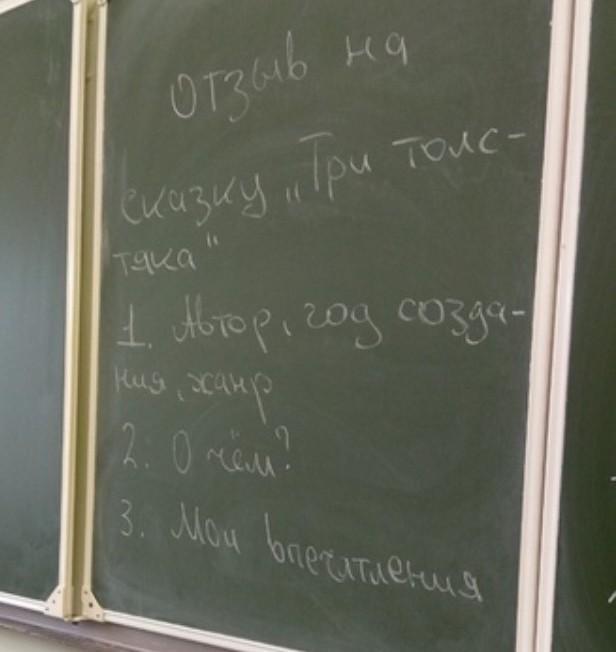 Отзыв на
сказку „Три толс-
тяка"
1. Автор, год созда-
ния, жанр
2. О чём?
3. Мои впечатления